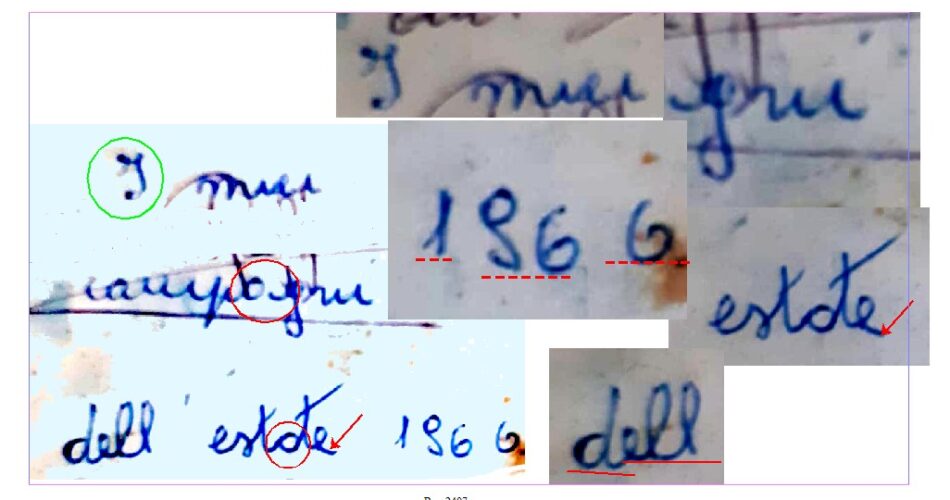 I miei
gni
1966
estate
dell
I miei
compagni
dell' estate 1966